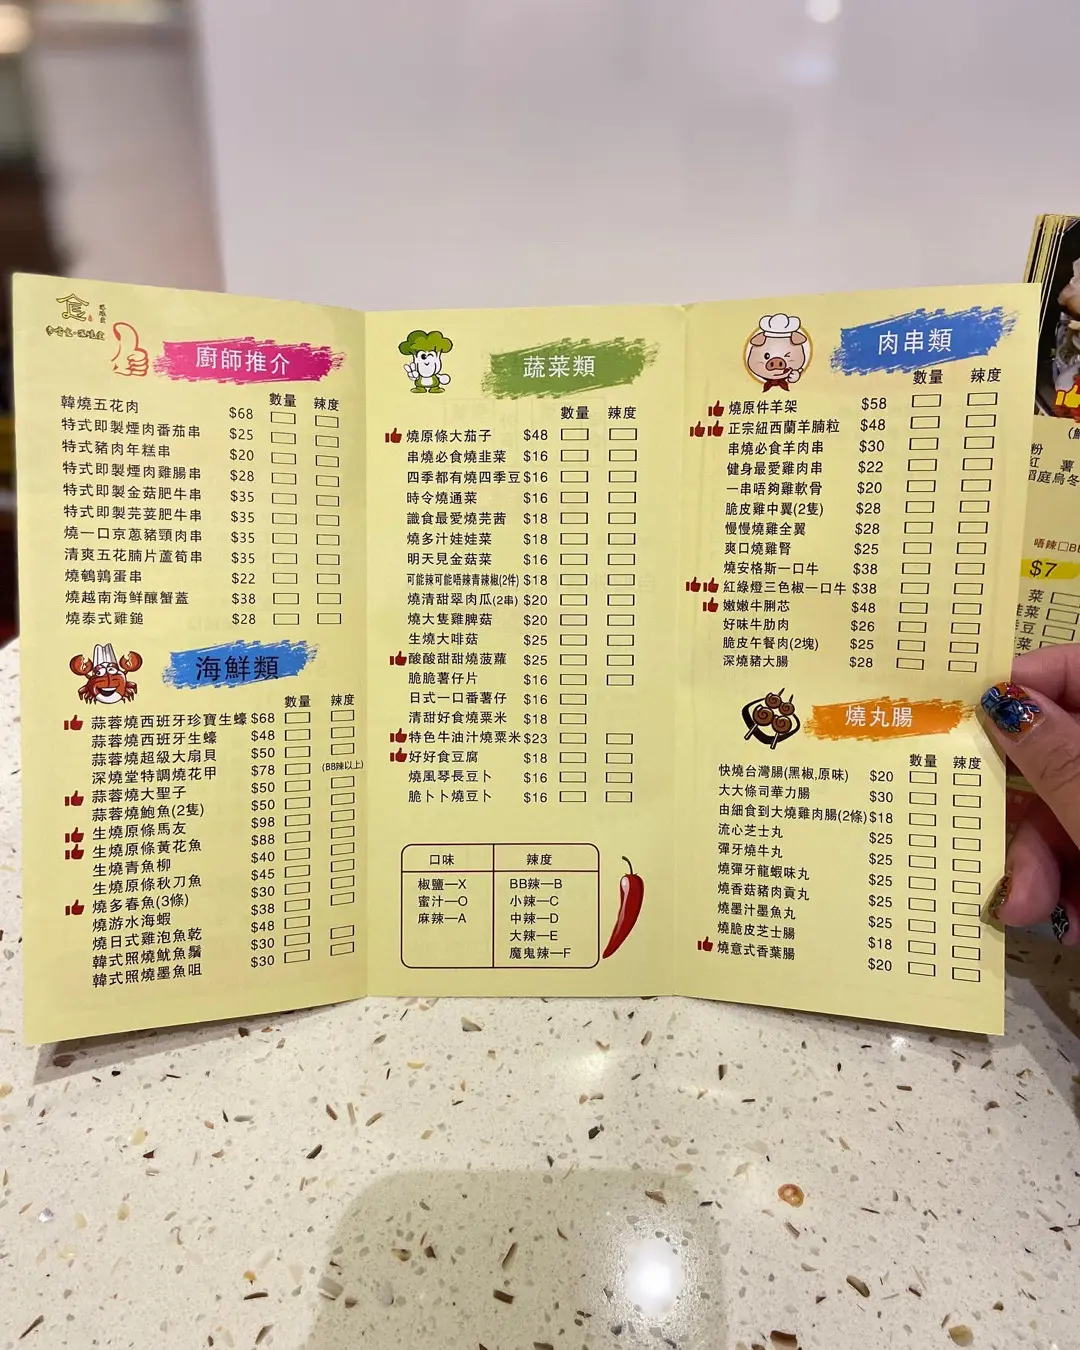 食
廚師推介
數量 辣度
韓燒五花肉 $68
特式即製煙肉番茄串 $25
特式豬肉年糕串 $20
特式即製煙肉雞腸串 $28
特式即製金菇肥牛串 $35
特式即製芫荽肥牛串 $35
燒一口京蔥豬頸肉串 $35
清爽五花腩片蘆筍串 $35
燒鵪鶉蛋串 $22
燒越南海鮮釀蟹蓋 $38
燒泰式雞鎚 $28
海鮮類
數量 辣度
蒜蓉燒西班牙珍寶生蠔 $68
蒜蓉燒西班牙生蠔 $48
蒜蓉燒超級大扇貝 $50
深燒堂特調燒花甲 $78 (BB辣以上)
蒜蓉燒大聖子 $50
蒜蓉燒鮑魚(2隻) $50
生燒原條馬友 $98
生燒原條黃花魚 $88
生燒青魚柳 $40
生燒原條秋刀魚 $45
燒多春魚(3條) $30
燒游水海蝦 $38
燒日式雞泡魚乾 $48
韓式照燒魷魚鬚 $30
韓式照燒墨魚咀 $30
蔬菜類
數量 辣度
燒原條大茄子 $48
串燒必食燒韭菜 $16
四季都有燒四季豆 $16
時令燒通菜 $16
識食最愛燒芫茜 $18
燒多汁娃娃菜 $18
明天見金菇菜 $16
可能辣可能唔辣青辣椒(2件) $18
燒清甜翠肉瓜(2串) $20
燒大隻雞脾菇 $20
生燒大啡菇 $25
酸酸甜甜燒菠蘿 $25
脆脆薯仔片 $16
日式一口番薯仔 $16
清甜好食燒粟米 $18
特色牛油汁燒粟米 $23
好好食豆腐 $18
燒風琴長豆卜 $16
脆卜卜燒豆卜 $16
口味 辣度
椒鹽—X BB辣—B
蜜汁—O 小辣—C
麻辣—A 中辣—D
大辣—E
魔鬼辣—F
肉串類
數量 辣度
燒原件羊架 $58
正宗紐西蘭羊腩粒 $48
串燒必食羊肉串 $30
健身最愛雞肉串 $22
一串唔夠雞軟骨 $20
脆皮雞中翼(2隻) $28
慢慢燒雞全翼 $28
爽口燒雞腎 $25
燒安格斯一口牛 $38
紅綠燈三色椒一口牛 $38
嫩嫩牛脷芯 $48
好味牛肋肉 $26
脆皮午餐肉(2塊) $25
深燒豬大腸 $28
燒丸腸
數量 辣度
快燒台灣腸(黑椒,原味) $20
大大條司華力腸 $30
由細食到大燒雞肉腸(2條) $18
流心芝士丸 $25
彈牙燒牛丸 $25
燒彈牙龍蝦味丸 $25
燒香菇豬肉貢丸 $25
燒墨汁墨魚丸 $25
燒脆皮芝士腸 $18
燒意式香葉腸 $20
粉
紅 薯
稻庭烏冬
唔辣□BB
$7
菜
娃菜
季豆
菜